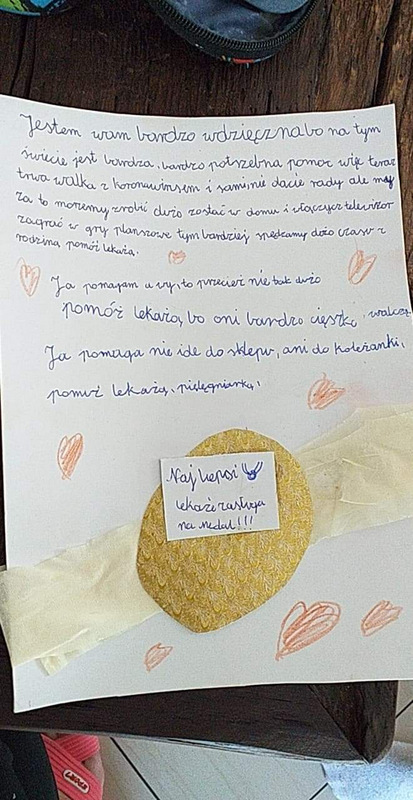 Jestem wam bardzo wdzięczna bo na tym
świecie jest bardza, bardzo potrzebna pomoc więc teraz
trwa walka z koronawirusem i sami nie dacie rady ale my
za to możemy zrobić dużo zostać w domu i włączyć telewizor
zagrać w gry planszowe tym bardziej spędzamy dożo czasu z
rodziną pomóż lekażą.
Ja pomagam a wy, to przecież nie tak dużo
pomóż lekażą, bo oni bardzo cięszko, walczą
Ja pomaga nie ide do sklepu, ani do koleżanki,
pomuż lekażą, pielęgniarką,
Naj lepsi
lekaże zasługa
na medal!!!